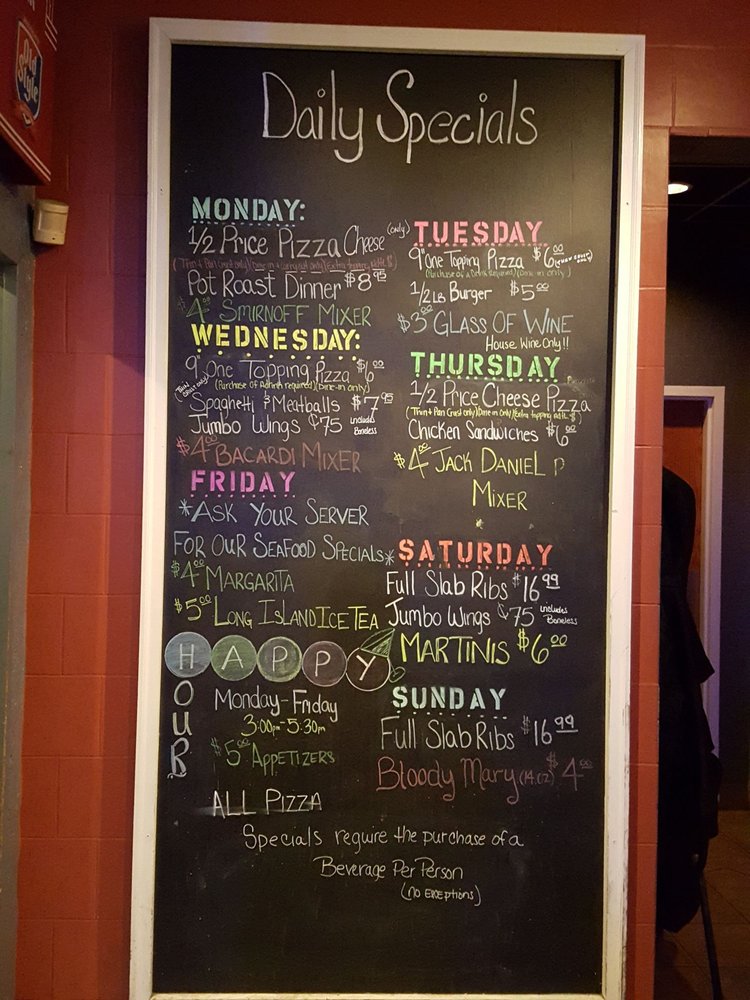 Old Style
Daily Specials
MONDAY:
1/2 Price Pizza Cheese (only)
(Thin + Pan Crust only)(Dine-in + Carryout only)(Extra topping
Pot Roast Dinner $8.95
$4.00 SMIRNOFF MIXER
WEDNESDAY:
9" One Topping Pizza $6.00
(Thin Crust only) (Purchase of A drink required)(Dine-in only)
Spaghetti & Meatballs $7.95
Jumbo Wings ¢75 includes Boneless
$4.00 BACARDI MIXER
FRIDAY
*ASK YOUR SERVER
FOR OUR SEAFOOD SPECIALS*
$4.00 MARGARITA
$5.00 LONG ISLAND ICE TEA
HAPPY
HOUR
Monday-Friday
3:00pm-5:30pm
$5.00 APPETIZERS
ALL PIZZA
TUESDAY
9" One Topping Pizza $6.00 (Thin Crust only)
(Purchase of A Drink Required)(Dine-in only)
1/2 LB Burger $5.00
$3.00 GLASS OF WINE
House Wine Only!!
THURSDAY
1/2 Price Cheese Pizza
(Thin + Pan Crust only)(Dine-in only)(Extra topping
Chicken Sandwiches $6.00
$4.00 JACK DANIEL
MIXER
SATURDAY
Full Slab Ribs $16.99
Jumbo Wings ¢75 includes Boneless
MARTINIS $6.00
SUNDAY
Full Slab Ribs $16.99
Bloody Mary (14oz) $4.00
Specials require the purchase of a
Beverage Per Person
(no exceptions)